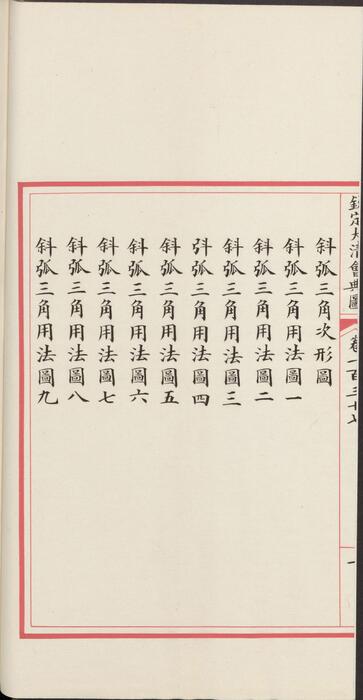 欽定大清會典圖
卷一百三十七
一
斜弧三角次形圖
斜弧三角用法圖一
斜弧三角用法圖二
斜弧三角用法圖三
斜弧三角用法圖四
斜弧三角用法圖五
斜弧三角用法圖六
斜弧三角用法圖七
斜弧三角用法圖八
斜弧三角用法圖九